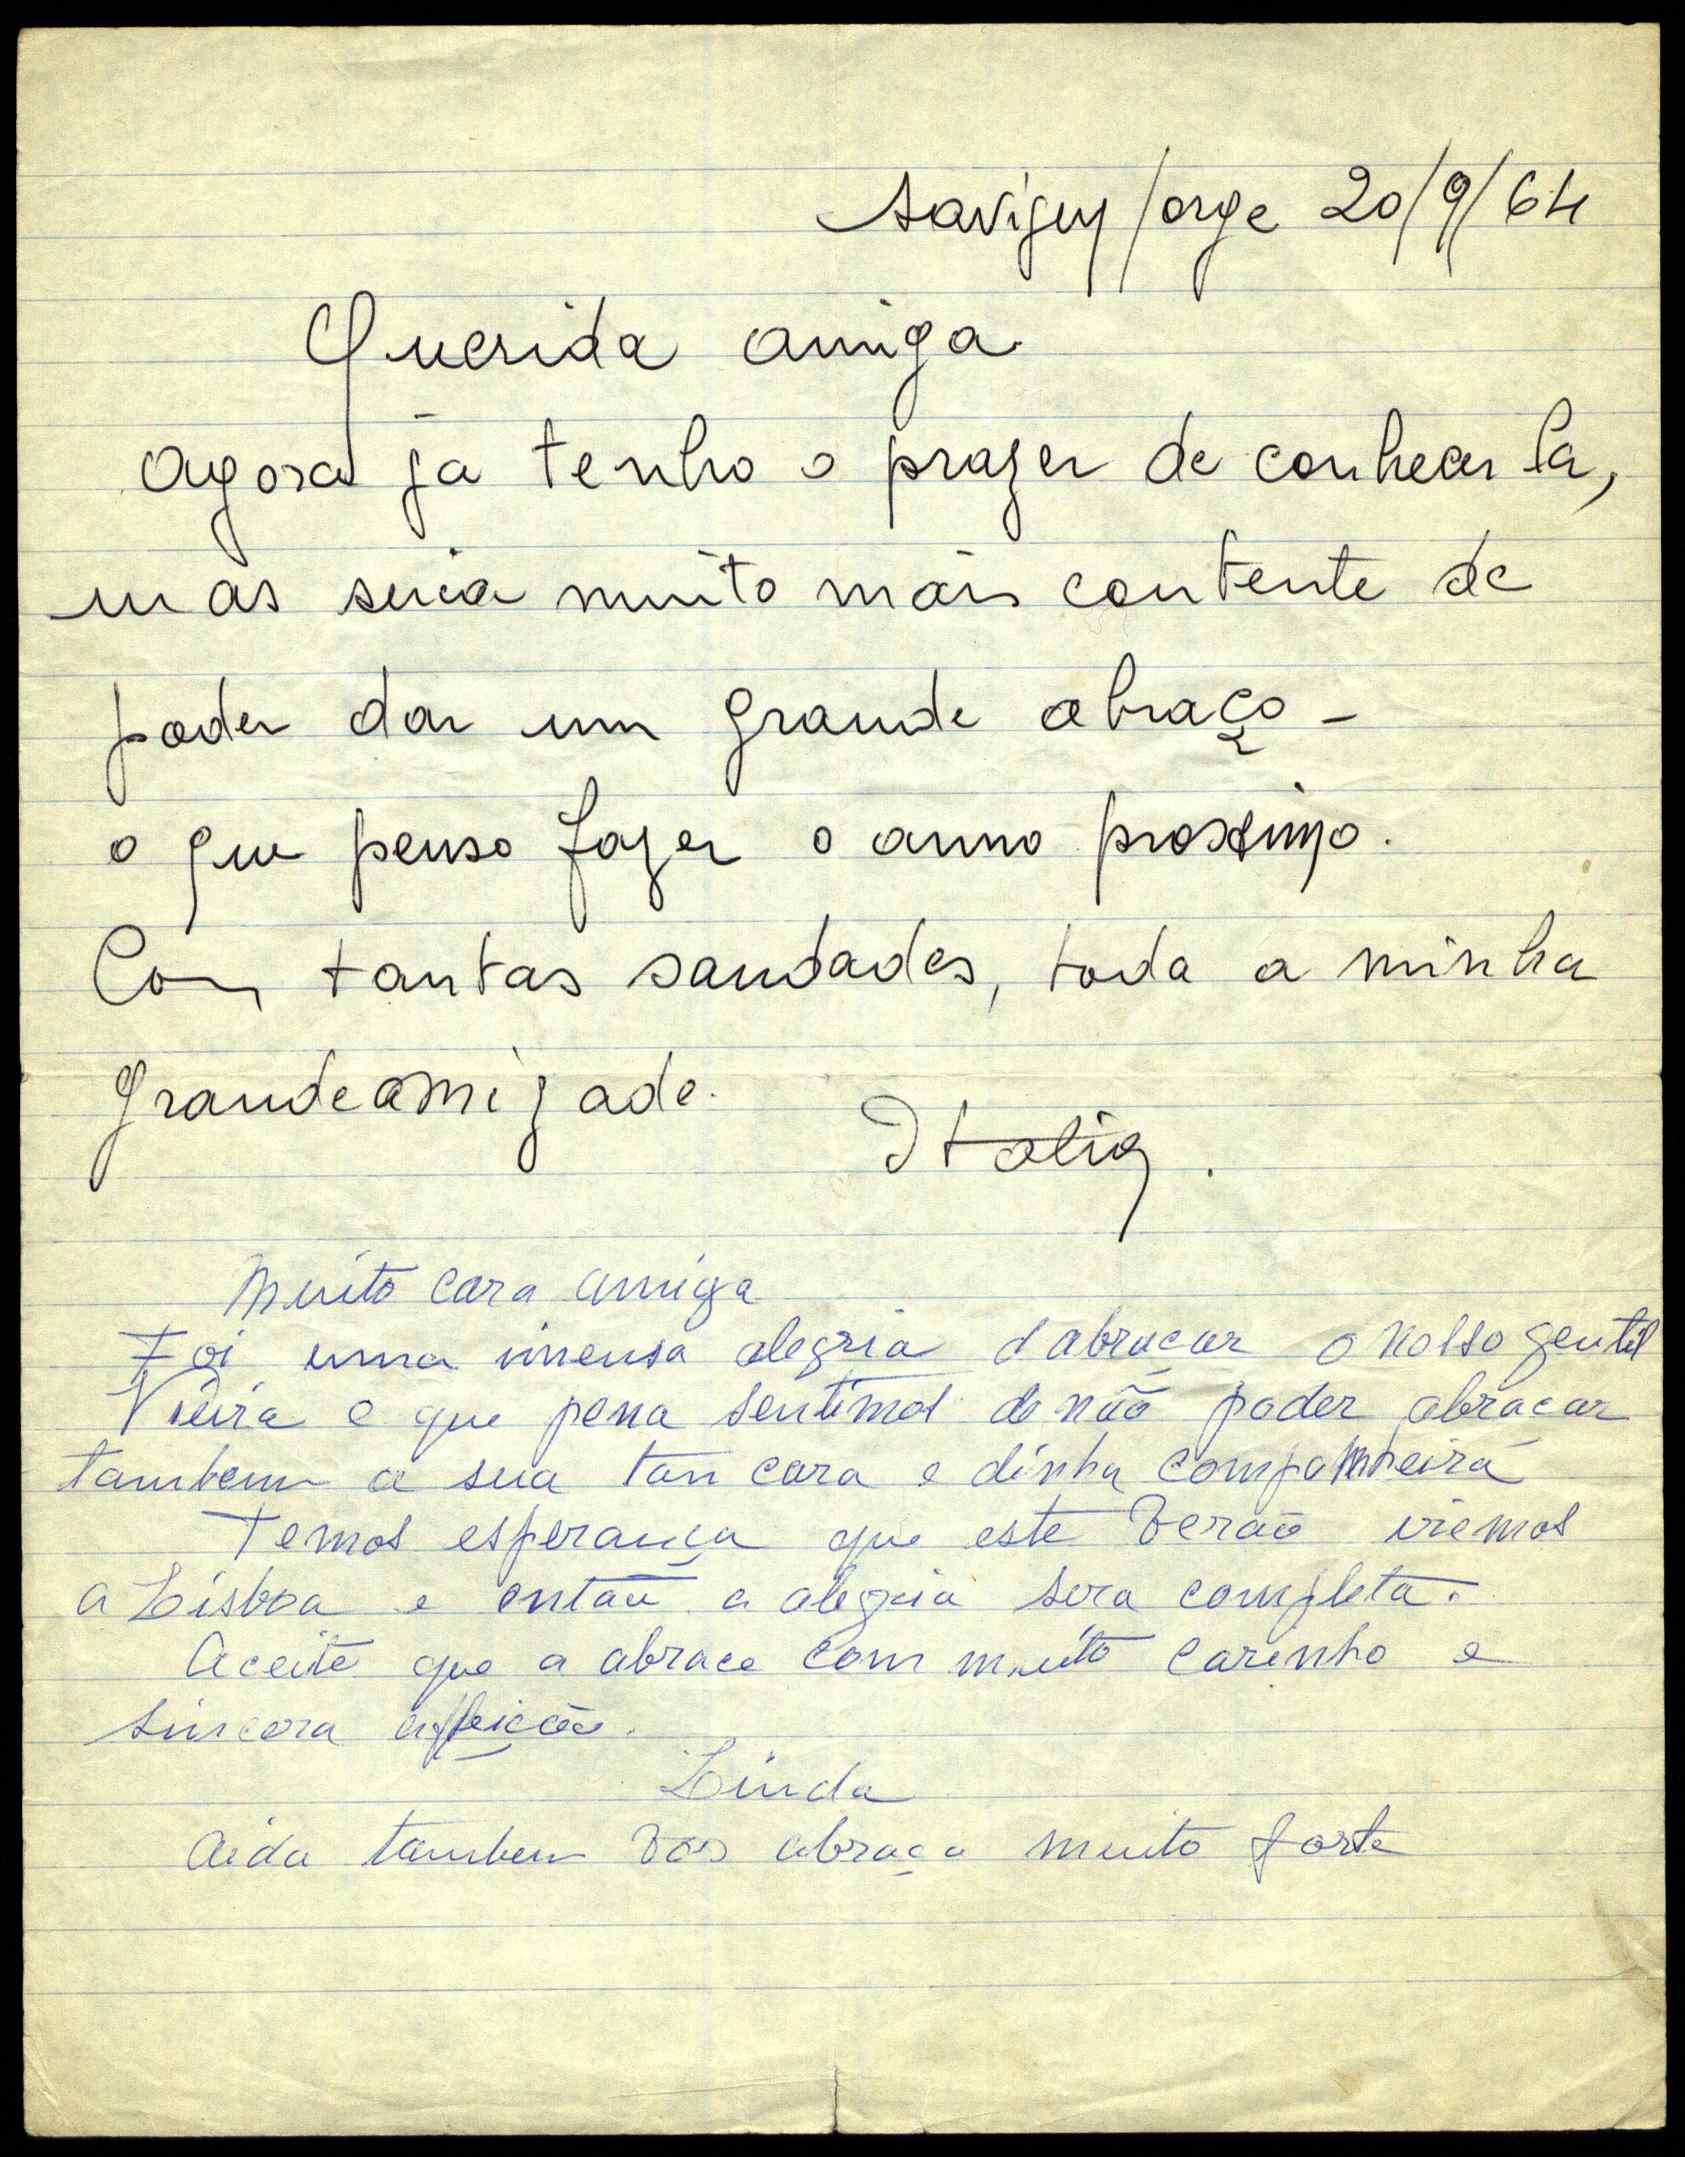 Savigny/orge 20/9/64
Querida amiga
Agora ja tenho o prazer de conhecer la,
mas seria muito mais contente de
poder dar um grande abraço -
o que penso fazer o anno proximo.
Com tantas saudades, toda a minha
grande amizade.
Italia.
Muito cara amiga
Foi uma imensa alegria d abraçar o nosso gentil
Vieira e que pena sentimos de não poder abracar
tambem a sua tan cara e dinha companheira
Temos esperança que este verão iremos
a Lisboa e então a alegria sera completa.
Aceite que a abrace com muito carinho e
sincera affeição.
Linda
Aida tambem vos abraça muito forte